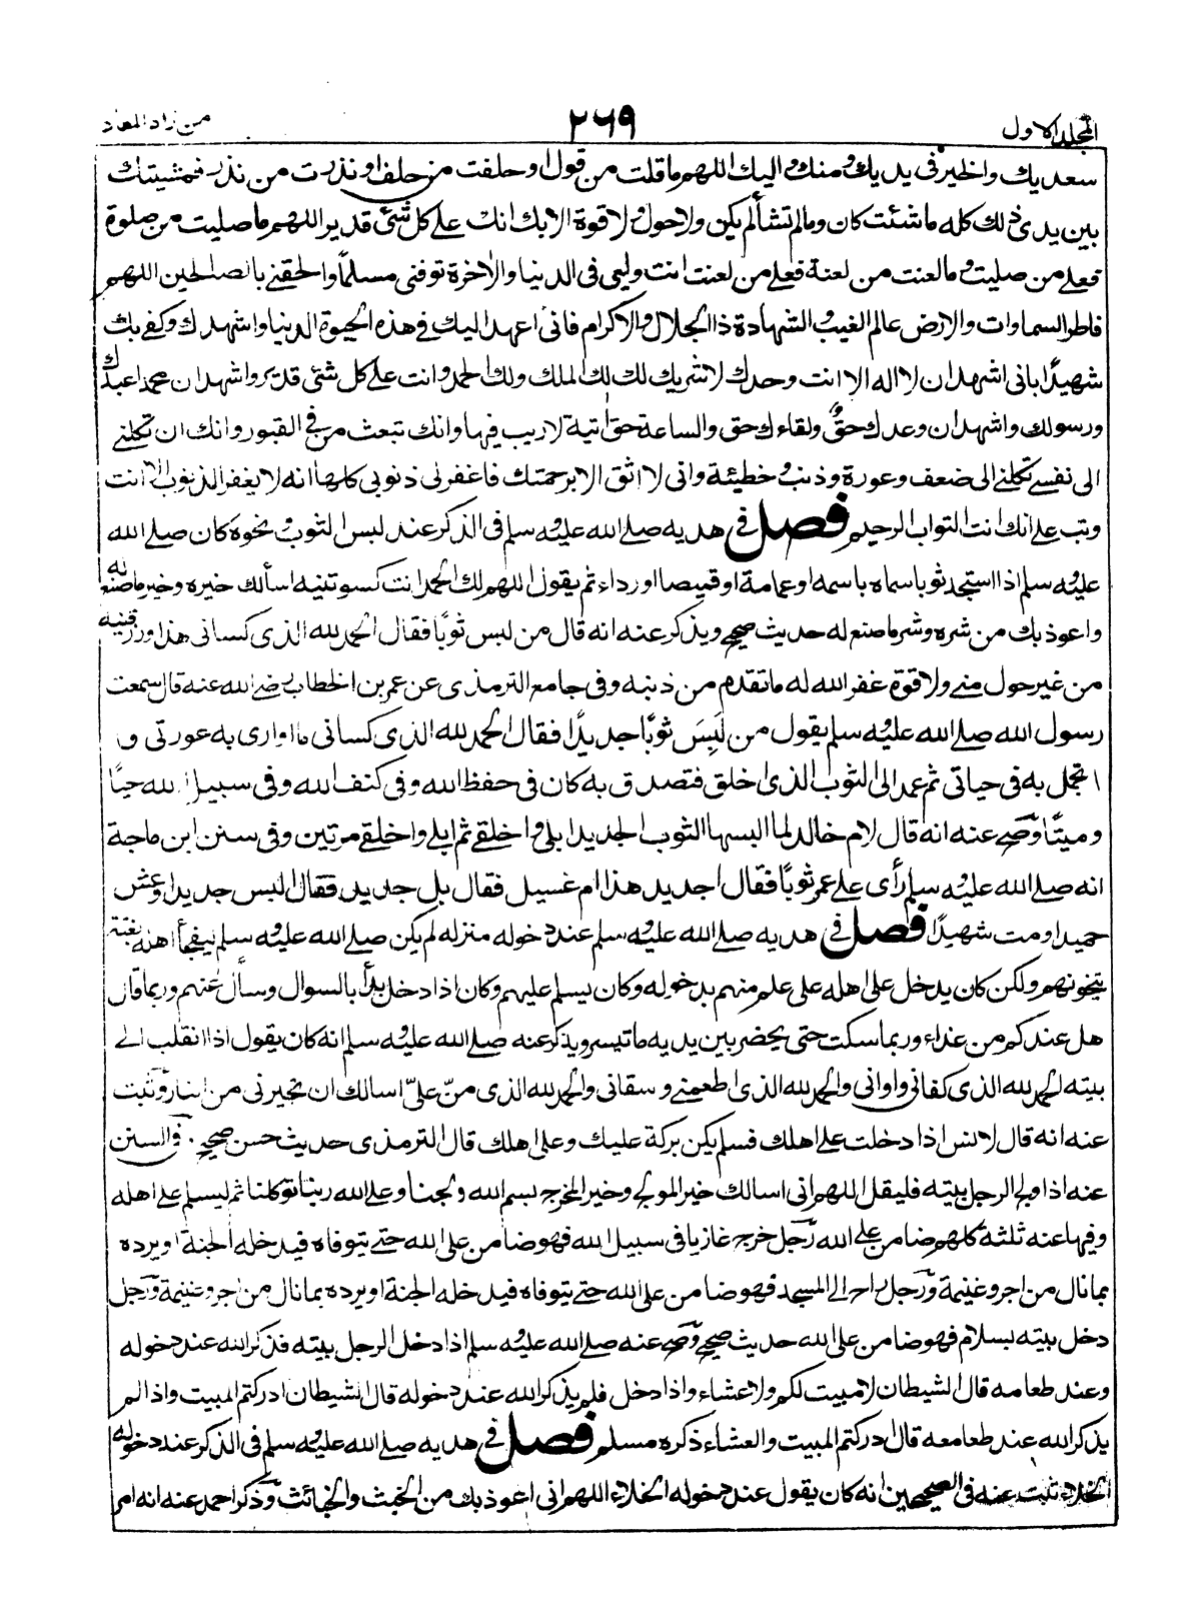 المجلد الاول ٢٦٩ من زاد المعاد
سعديك والخير في يديك ومنك واليك اللهم ما قلت من قول او حلفت من حلف او نذرت من نذر فمشيتك
بين يدي ذلك كله ما شئت كان وما لم تشأ لم يكن ولا حول ولا قوة الا بك انك على كل شئ قدير اللهم ما صليت من صلوة
فعلى من صليت وما لعنت من لعنة فعلى من لعنت انت وليي في الدنيا والاخرة توفني مسلمًا والحقني بالصالحين اللهم
فاطر السماوات والارض عالم الغيب والشهادة ذا الجلال والاكرام فاني اعهد اليك في هذه الحيوة الدنيا واشهدك وكفى بك
شهيدًا باني اشهد ان لا اله الا انت وحدك لا شريك لك لك الملك ولك الحمد وانت على كل شئ قدير واشهد ان محمدا عبدك
ورسولك واشهد ان وعدك حقٌّ ولقاءك حق والساعة حق اتية لا ريب فيها وانك تبعث من في القبور وانك ان تكلني
الى نفسي تكلني الى ضعف وعورة وذنب وخطيئة واني لا اثق الا برحمتك فاغفر لي ذنوبي كلها انه لا يغفر الذنوب الا انت
وتب علي انك انت التواب الرحيم فصل في هديه صلى الله عليه وسلم في الذكر عند لبس الثوب ونحوه كان صلى الله
عليه وسلم اذا استجد ثوبا سماه باسمه او عمامة او قميصا او رداء ثم يقول اللهم لك الحمد انت كسوتنيه اسألك خيره وخير ما صنع له
واعوذ بك من شره وشر ما صنع له حديث صحيح ويذكر عنه انه قال من لبس ثوبًا فقال الحمد لله الذي كساني هذا ورزقنيه
من غير حول مني ولا قوة غفر الله له ما تقدم من ذنبه وفي جامع الترمذي عن عمر بن الخطاب رضي الله عنه قال سمعت
رسول الله صلى الله عليه وسلم يقول من لَبِسَ ثوبًا جديدًا فقال الحمد لله الذي كساني ما اوارى به عورتي و
اتجمل به في حياتي ثم عمد الى الثوب الذي اخلق فتصدق به كان في حفظ الله وفي كنف الله وفي سبيل الله حيًا
وميتًا وصح عنه انه قال لام خالد لما البسها الثوب الجديد ابلي واخلقي ثم ابلي واخلقي مرتين وفي سنن ابن ماجة
انه صلى الله عليه وسلم رأى على عمر ثوبًا فقال اجديد هذا ام غسيل فقال بل جديد فقال البس جديدا وعش
حميدا ومت شهيدًا فصل في هديه صلى الله عليه وسلم عند دخوله منزله لم يكن صلى الله عليه وسلم ليفجأ اهله بغتة
يتخونهم ولكن كان يدخل على اهله على علم منهم بدخوله وكان يسلم عليهم وكان اذا دخل بدأ بالسوال وسأل عنهم وربما قال
هل عندكم من غداء وربما سكت حتى يحضر بين يديه ما تيسر ويذكر عنه صلى الله عليه وسلم انه كان يقول اذا انقلب الى
بيته الحمد لله الذي كفاني واواني والحمد لله الذي اطعمني وسقاني والحمد لله الذي منّ عليّ اسالك ان تجيرني من النار وثبت
عنه انه قال لانس اذا دخلت على اهلك فسلم يكن بركة عليك وعلى اهلك قال الترمذي حديث حسن صحيح. وفي السنن
عنه اذا ولج الرجل بيته فليقل اللهم اني اسالك خير المولج وخير المخرج بسم الله ولجنا وعلى الله ربنا توكلنا ثم ليسلم على اهله
وفيها عنه ثلثة كلهم ضامن على الله رجل خرج غازيا في سبيل الله فهو ضامن على الله حتى يتوفاه فيدخله الجنة او يرده
بما نال من اجر وغنيمة ورجل راح الى المسجد فهو ضامن على الله حتى يتوفاه فيدخله الجنة او يرده بما نال من اجر وغنيمة ورجل
دخل بيته بسلام فهو ضامن على الله حديث صحيح وصح عنه صلى الله عليه وسلم اذا دخل الرجل بيته فذكر الله عند دخوله
وعند طعامه قال الشيطان لا مبيت لكم ولا عشاء واذا دخل فلم يذكر الله عند دخوله قال الشيطان ادركتم المبيت واذا لم
يذكر الله عند طعامه قال ادركتم المبيت والعشاء ذكره مسلم فصل في هديه صلى الله عليه وسلم في الذكر عند دخوله
الخلاء ثبت عنه في الصحيحين انه كان يقول عند دخوله الخلاء اللهم اني اعوذ بك من الخبث والخبائث وذكر احمد عنه انه امر